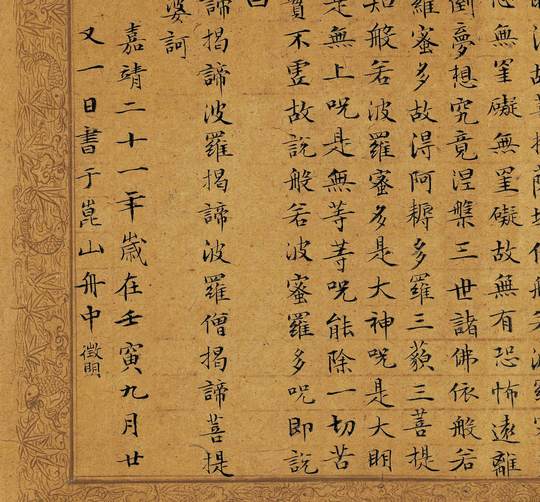 故菩提薩埵依般若波羅
心無罣礙無罣礙故無有恐怖遠離
倒夢想究竟涅槃三世諸佛依般若
羅蜜多故得阿耨多羅三藐三菩提
知般若波羅蜜多是大神呪是大明
是無上呪是無等等呪能除一切苦
實不虛故說般若波蜜羅多呪即說
曰
諦揭諦波羅揭諦波羅僧揭諦菩提
婆訶
嘉靖二十一年歲在壬寅九月廿
又一日書于崑山舟中 徵明